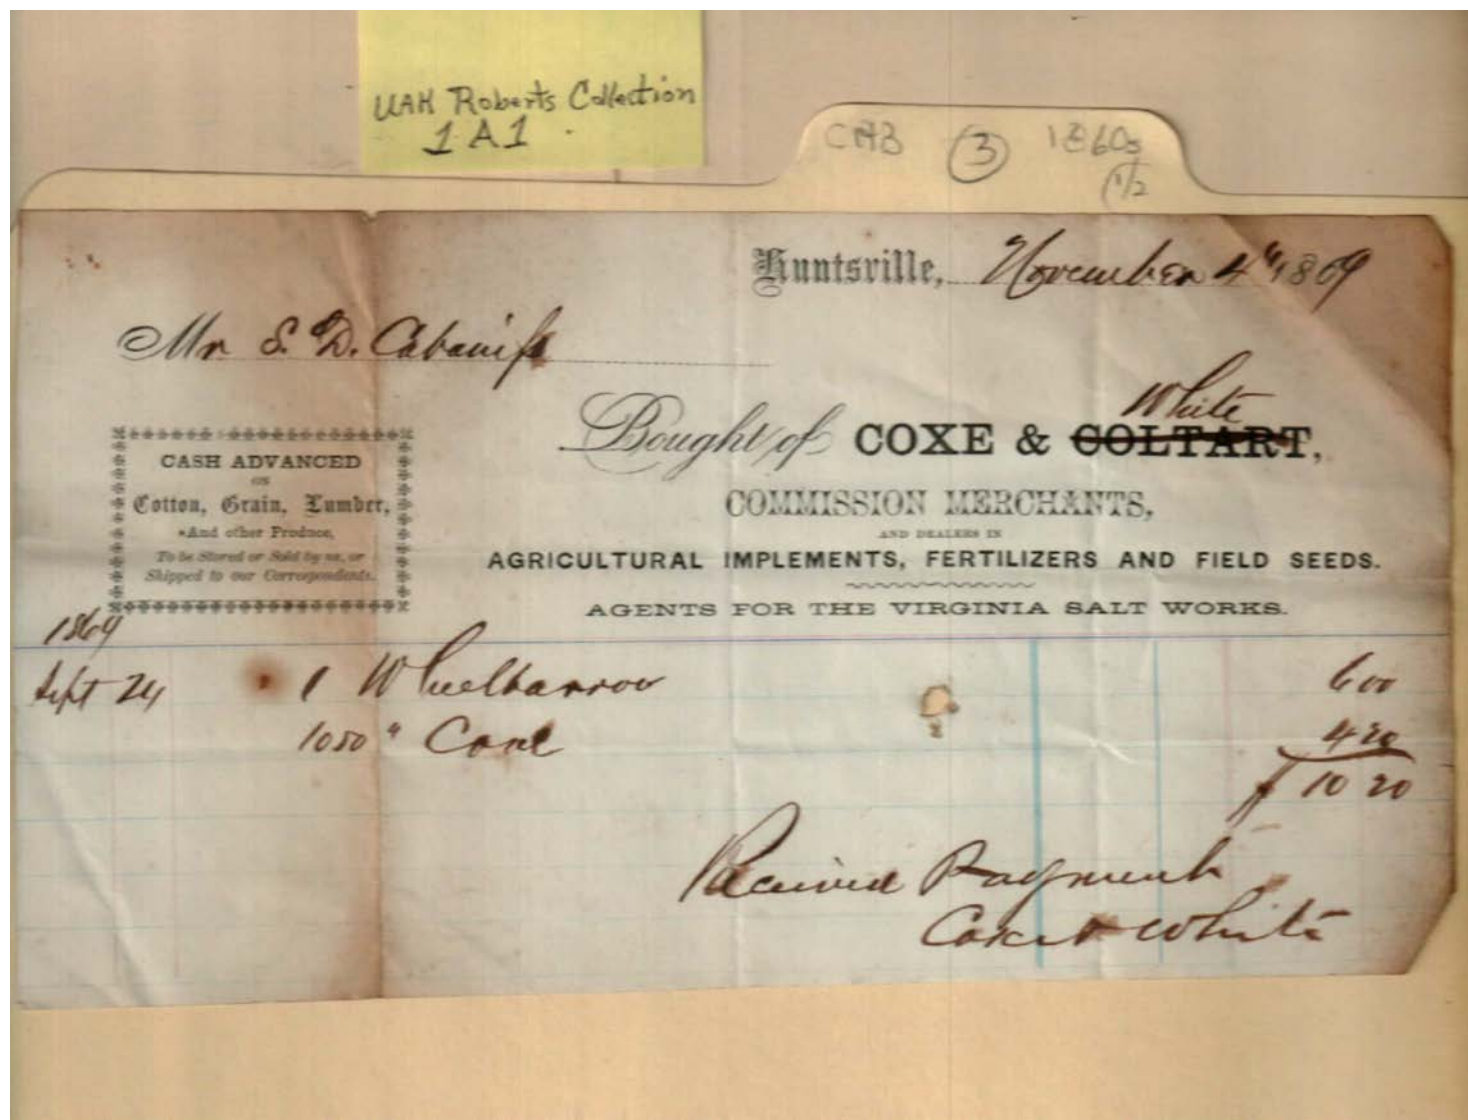 UAH Roberts Collection
1A1
CAB 3 1860s
1/2
Huntsville, November 4th 1869
Mr S. D. Cabaniss
White
Bought of COXE & COLTART,
COMMISSION MERCHANTS,
AND DEALERS IN
AGRICULTURAL IMPLEMENTS, FERTILIZERS AND FIELD SEEDS.
AGENTS FOR THE VIRGINIA SALT WORKS.
CASH ADVANCED
ON
Cotton, Grain, Lumber,
And other Produce,
To be Stored or Sold by us, or
Shipped to our Correspondents.
1869
Sept 24 1 Wheelbarrow 6 00
" 4 20
$ 10 20
Received Payment
Coxe & White